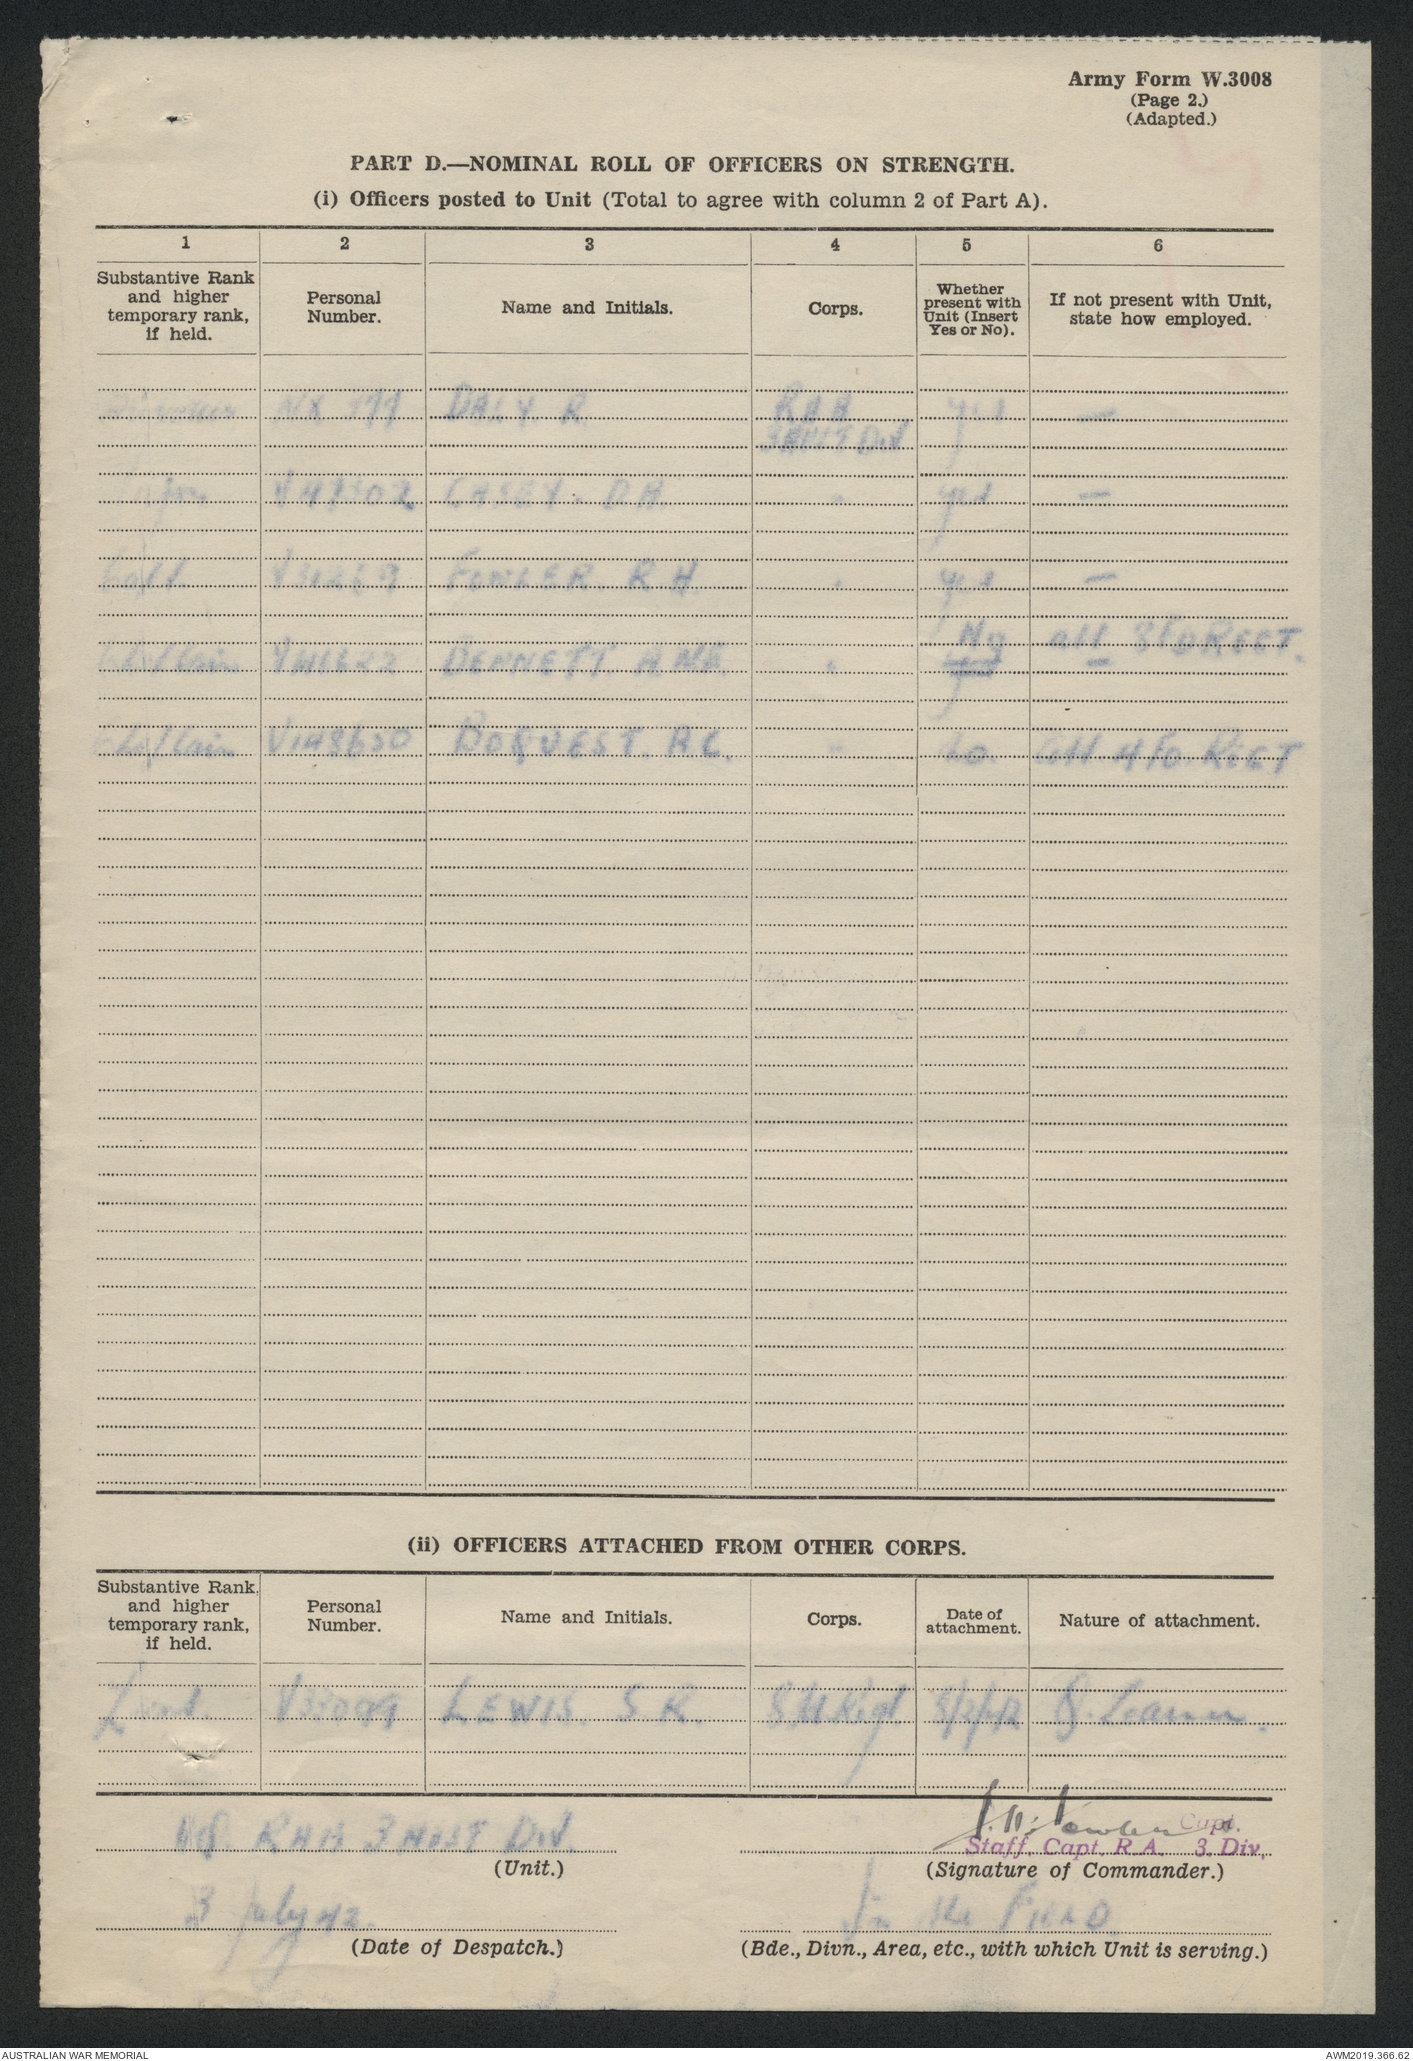 Army Form W.3008
(Page 2.)
(Adapted.)
PART D.—NOMINAL ROLL OF OFFICERS ON STRENGTH.
(i) Officers posted to Unit (Total to agree with column 2 of Part A).
1 2 3 4 5 6
Substantive Rank and higher temporary rank, if held.
Personal Number.
Name and Initials.
Corps.
Whether present with Unit (Insert Yes or No).
If not present with Unit, state how employed.
NX 177 DALY. R. RAA yes —
3 AUST Div
V47502 CASEY. D A " yes —
Capt. FOWLER R H " yes —
No att
Chaplain BENNETT. "
Chaplain V148650 BOQUEST. A C. " do. att 4 FD. REGT
(ii) OFFICERS ATTACHED FROM OTHER CORPS.
Substantive Rank, and higher temporary rank, if held.
Personal Number.
Name and Initials.
Corps.
Date of attachment.
Nature of attachment.
V33099 LEWIS. S. R. Learner.
HQ. RAA 3 AUST Div.
Capt.
Staff. Capt. R A. 3 Div.
(Unit.)
(Signature of Commander.)
3 July 42.
In the FIELD
(Date of Despatch.)
(Bde., Divn., Area, etc., with which Unit is serving.)
AUSTRALIAN WAR MEMORIAL
AWM2019.366.62